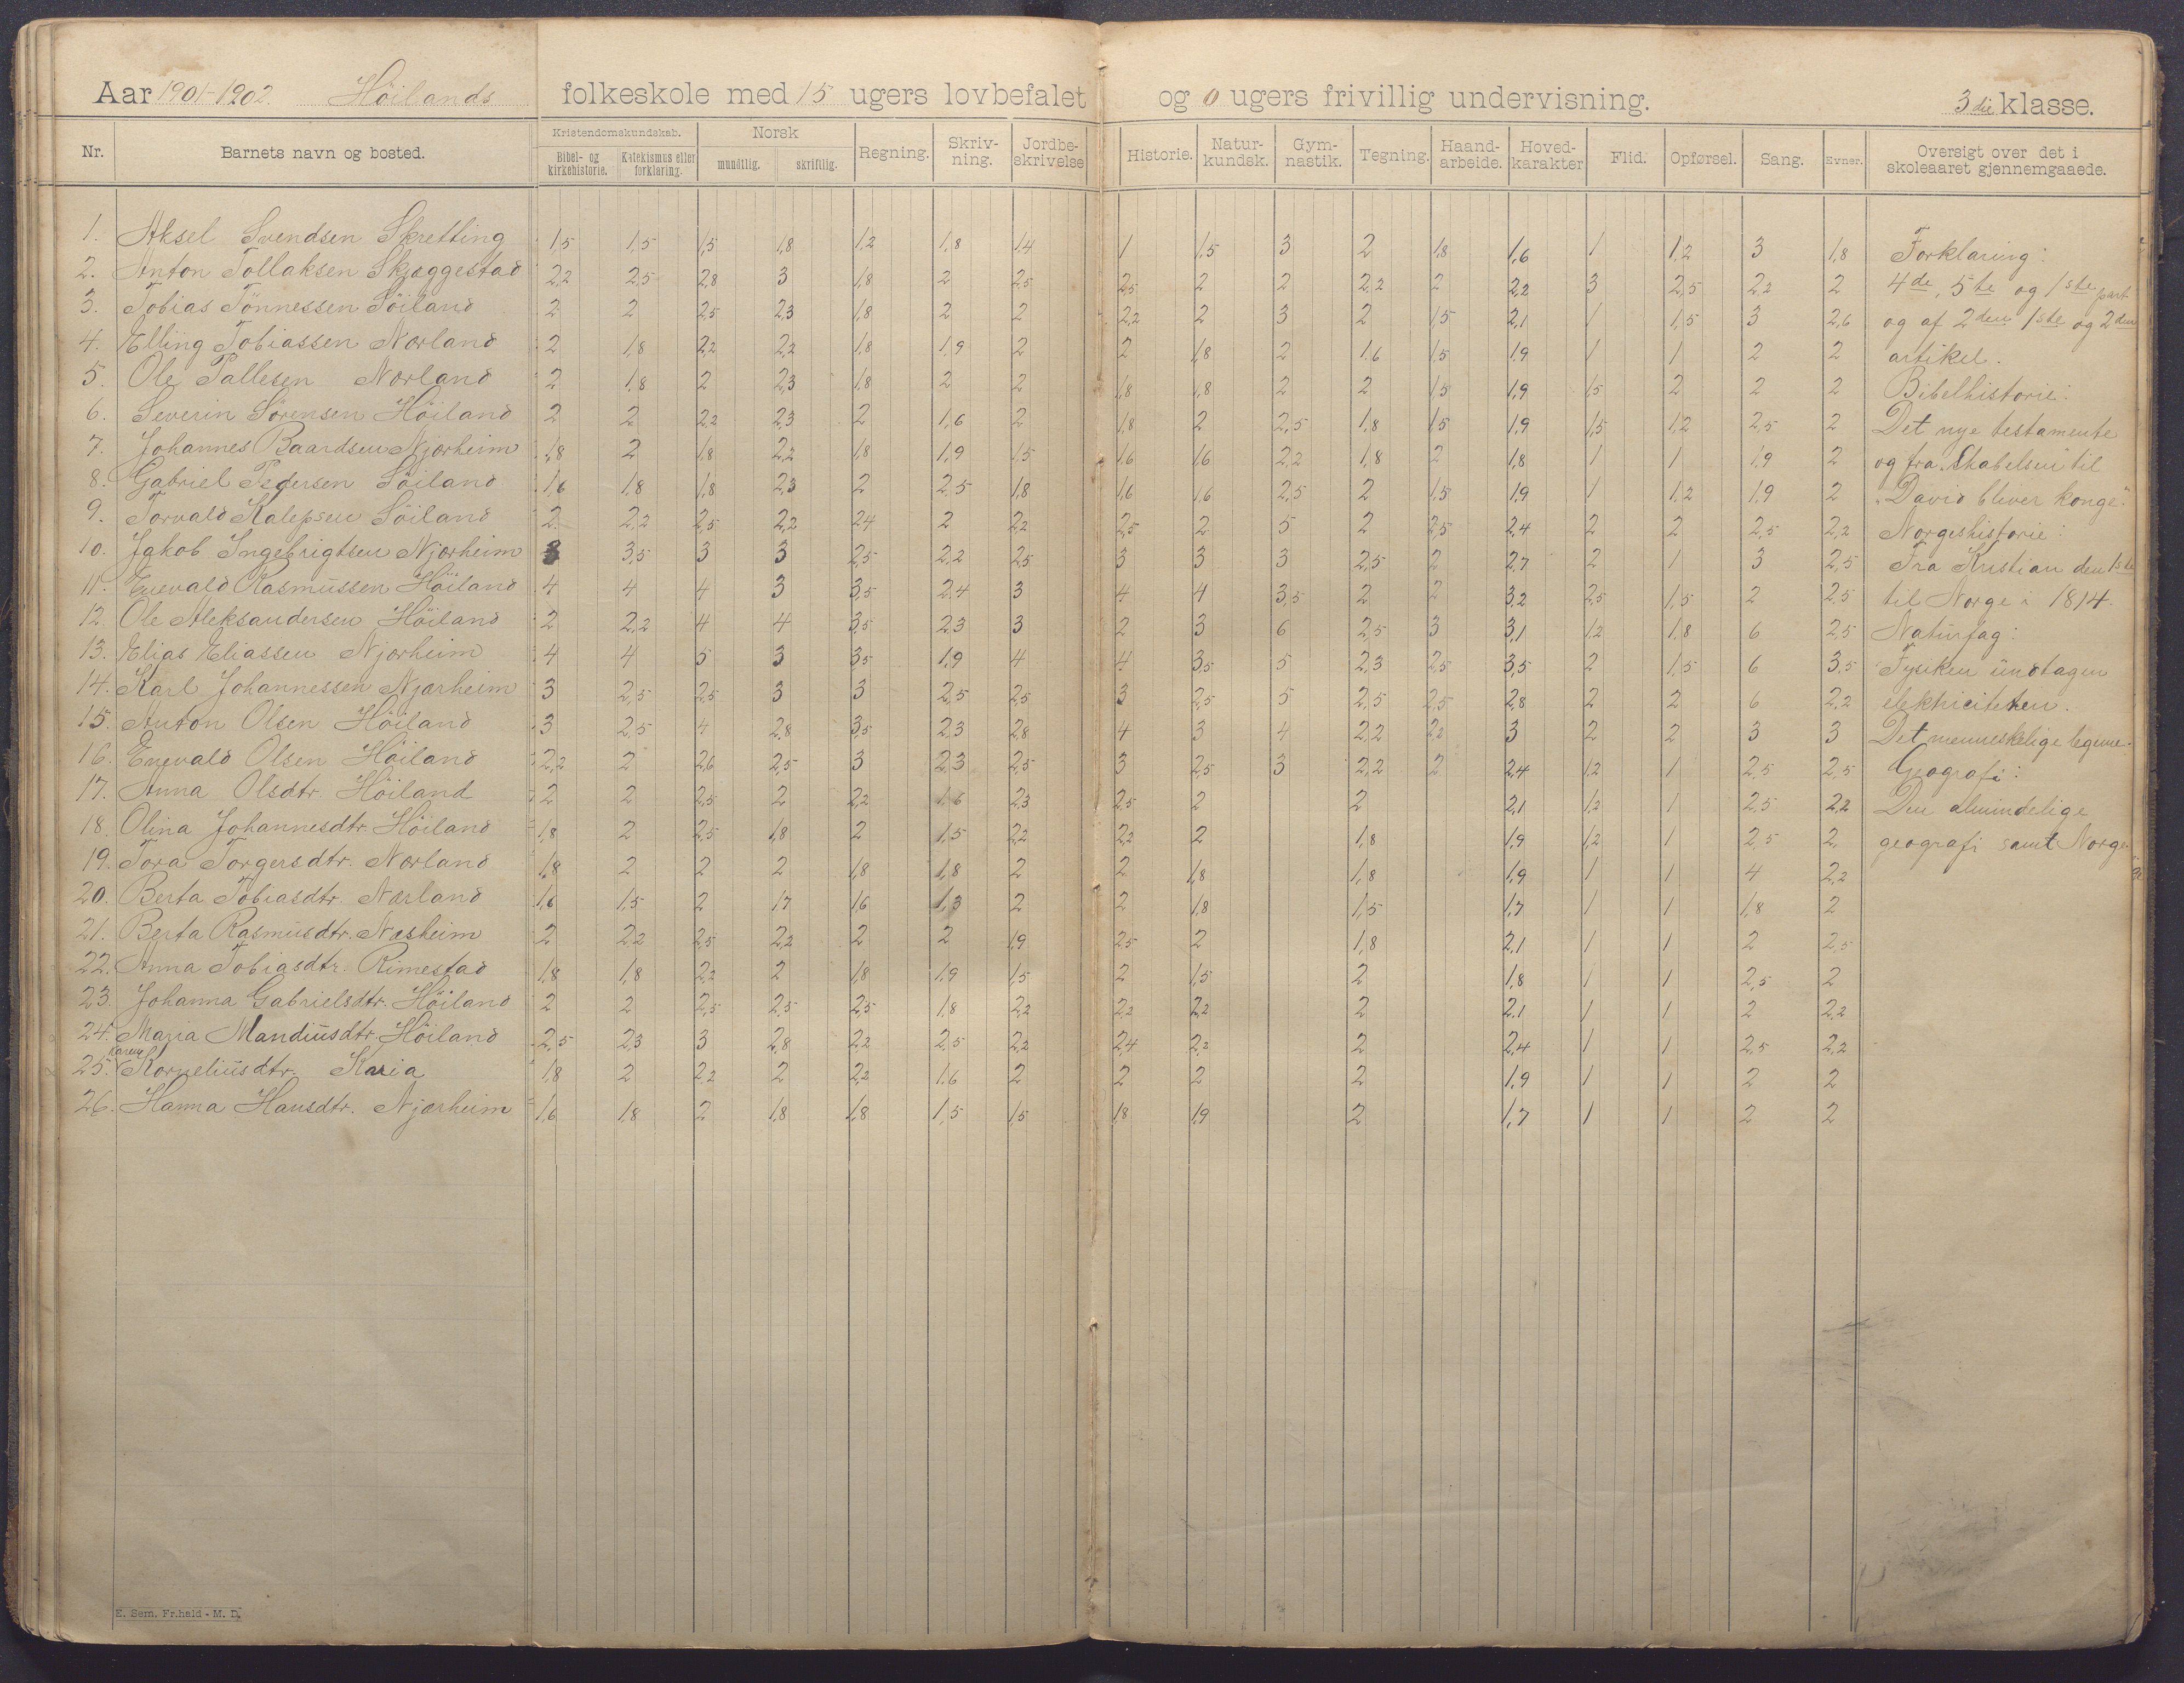 Aar 1901-1902. Höilands folkeskole med 15 ugers lovbefalet og 0 ugers frivillig undervisning. 3die klasse.
Nr. Barnets navn og bosted. Kristendomskundskab. Bibel- og kirkehistorie. Katekismus eller forklaring. Norsk mundtlig. skriftlig. Regning. Skriv-ning. Jordbe-skrivelse Historie. Natur-kundsk. Gym-nastik. Tegning. Haand-arbeide. Hoved-karakter Flid. Opførsel. Sang. Evner. Oversigt over det i skoleaaret gjennemgaaede.
1. Aksel Svendsen Skretting 1,5 1,5 1,5 1,8 1,2 1,8 1,4 1 1,5 3 2 1,8 1,6 1 1,2 3 1,8 Forklaring:
2. Anton Tollaksen Skjæggestad 2,2 2,5 2,8 3 1,8 2 2,5 2,5 2 2 2,2 2 2,2 3 2,5 2,2 2 4de, 5te og 1ste part
3. Tobias Tönnessen Söiland 2 2 2,5 2,3 1,8 2 2 2,2 2 3 2 1,5 2,1 1 1,5 3 2,6 og af 2den 1ste og 2den
4. Elling Tobiassen Nærland 2 1,8 2,2 2,2 1,8 1,9 2 2 1,8 2 1,6 1,5 1,9 1 1 2 2 artikel.
5. Ole Pallesen Nærland 2 1,8 2 2,3 1,8 2 2 1,8 1,8 2 2 1,5 1,9 1,5 2 2 2 Bibelhistorie:
6. Severin Sörensen Höiland 2 2 2,2 2,3 2 1,6 2 1,8 2 2,5 1,8 1,5 1,9 1,5 1,2 2,5 2 Det nye testamente
7. Johannes Baardsen Njærheim 1,8 2 1,8 2,2 1,8 1,9 1,5 1,6 1,6 2,2 1,8 2 1,8 1 1 1,9 2 og fra "Skabelsen" til
8. Gabriel Pedersen Söiland 1,6 1,8 1,8 2,3 2 2,5 1,8 1,6 1,6 2,5 2 1,5 1,9 1 1,2 1,9 2 "David bliver konge".
9. Torvald Kalepsen Söiland 2 2,2 2,5 2,2 2,4 2 2,2 2,5 2 5 2 2,5 2,4 2 2 2,5 2,2 Norgeshistorie:
10. Jakob Ingebrigtsen Njærheim 3 3,5 3 3 2,5 2,2 2,5 3 3 3 2,5 2 2,7 2 1 3 2,5 Fra Kristian den 1ste
11. Enevald Rasmussen Höiland 4 4 4 3 3,5 2,4 3 4 4 3,5 2 2 3,2 2,5 1,5 2 2,5 til Norge i 1814.
12. Ole Aleksandersen Höiland 2 2,2 4 4 3,5 2,3 3 2 3 6 2,5 3 3,1 1,2 1,8 6 2,5 Naturfag:
13. Elias Eliassen Njærheim 4 4 5 3 3,5 1,9 4 4 3,5 5 2,3 2,5 3,5 2 1,5 6 3,5 Fysiken undtagen
14. Karl Johannessen Njærheim 3 2,5 2,5 3 3 2,5 2,5 3 2,5 5 2,5 2,5 2,8 2 2 6 2,2 elektriciteten.
15. Anton Olsen Höiland 3 2,5 4 2,8 3,5 2,3 2,8 4 3 4 2,2 2,2 3 2 2 3 3 Det menneskelige legeme.
16. Enevald Olsen Höiland 2,2 2 2,6 2,5 3 2,3 2,5 3 2,5 3 2,2 2 2,4 1,2 1 2,5 2,5 Geografi:
17. Anna Olsdtr. Höiland 2 2 2,5 2 2,2 1,6 2,3 2,5 2 2 2,1 1,2 1 2,5 2,2 Den almindelige
18. Olina Johannesdtr. Höiland 1,8 2 2,5 1,8 2 1,5 2,2 2,2 2 1,8 1,9 1,2 1 2,5 2, geografi samt Norge
19. Tora Torgersdtr. Nærland 1,8 2 2 2 1,8 1,8 2 2 1,8 1,8 1,9 1 1 4 2,2
20. Berta Tobiasdtr. Nærland 1,6 1,5 2 1,7 1,6 1,3 2 2 1,8 1,5 1,7 1 1 1,8 2
21. Berta Rasmusdtr. Næsheim 2 2,2 2,5 2,2 2 2 1,9 2,5 2 1,8 2,1 1 1 2 2,5
22. Anna Tobiasdtr. Rimestad 1,8 1,8 2,2 2 1,8 1,9 1,5 2 1,5 2 1,8 1 1 2,5 2
23. Johanna Gabrielsdtr. Höiland 2 2 2,5 2,5 2,5 1,8 2,2 2,2 2,2 2 2,1 1 1 2 2,2
24. Maria Mandiusdtr. Höiland 2,5 2,3 3 2,8 2,2 2,5 2,2 2,4 2,2 2 2,4 1 1 2,5 2,2
25. Karen Korneliusdtr. Karia 1,8 2 2,2 2 2,2 1,6 2 2 2 2 1,9 1 1 2 2
26. Hanna Hansdtr. Njærheim 1,6 1,8 2 1,8 1,8 1,5 1,5 1,8 1,9 2 1,7 1 1 2 2
E. Sem. Fr.hald - M. D.